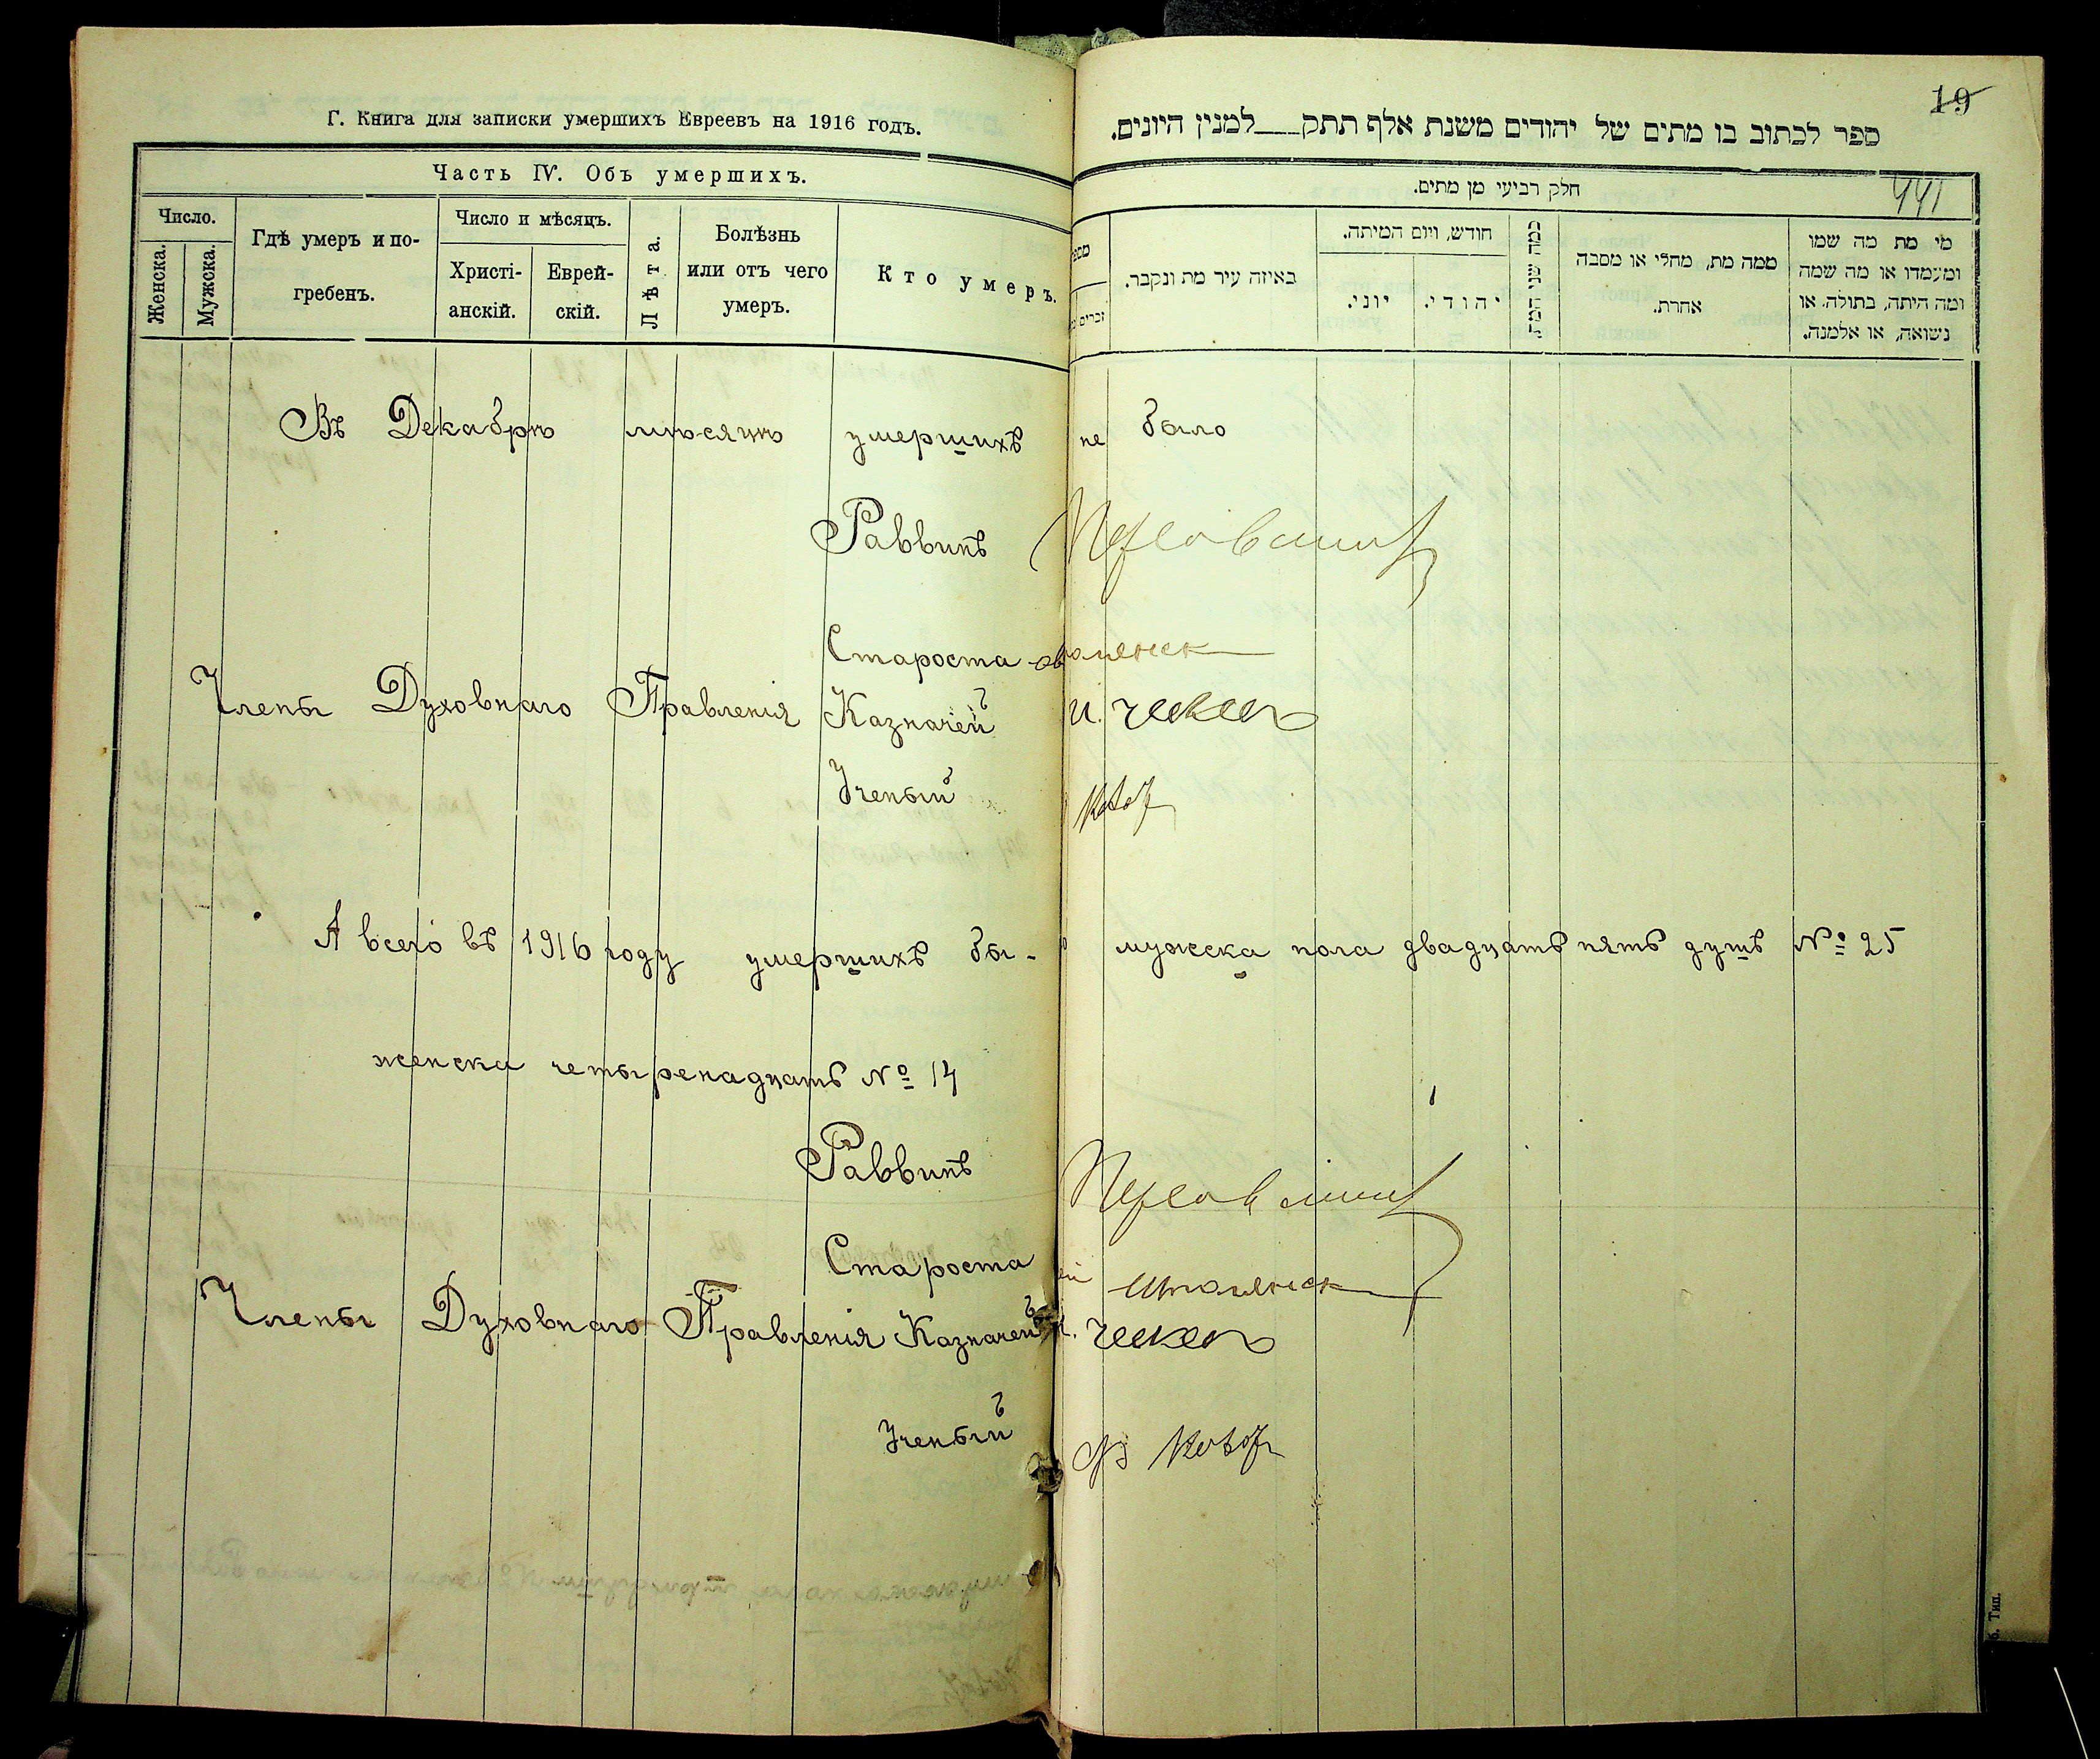 Г. Книга для записки умершихъ Евреевъ на 1916 годъ.
Часть IV. Объ умершихъ.
Число.
Женска.
Мужска.
Гдѣ умеръ и по-
гребенъ.
Число и мѣсяцъ.
Христі-
анскій.
Еврей-
скій.
Лѣта.
Болѣзнь
или отъ чего
умеръ.
Кто умеръ.
19
ספר לכתוב בו מתים של יהודים משנת אלף תתק___למנין היונים.
441
חלק רביעי מן מתים.
באיזה עיר מת ונקבר.
חודש, ויום המיתה.
יוני.
יהודי.
כמה שני המת
ממה מת, מחלי או מסבה
אחרת.
מי מת מה שמו
ומעמדו או מה שמה
ומה היתה, בתולה או
נשואה, או אלמנה.
Въ Декабрѣ мѣсяцѣ умершихъ не было
Раввинъ
Староста
Члены Духовнаго Правленія Казначей
Ученый
А всего въ 1916 году умершихъ бы- мужска пола двадцать пять душъ № 25
женска четыренадцать № 14
Раввинъ
Староста
Члены Духовнаго Правленія Казначей
Ученый
Тип.